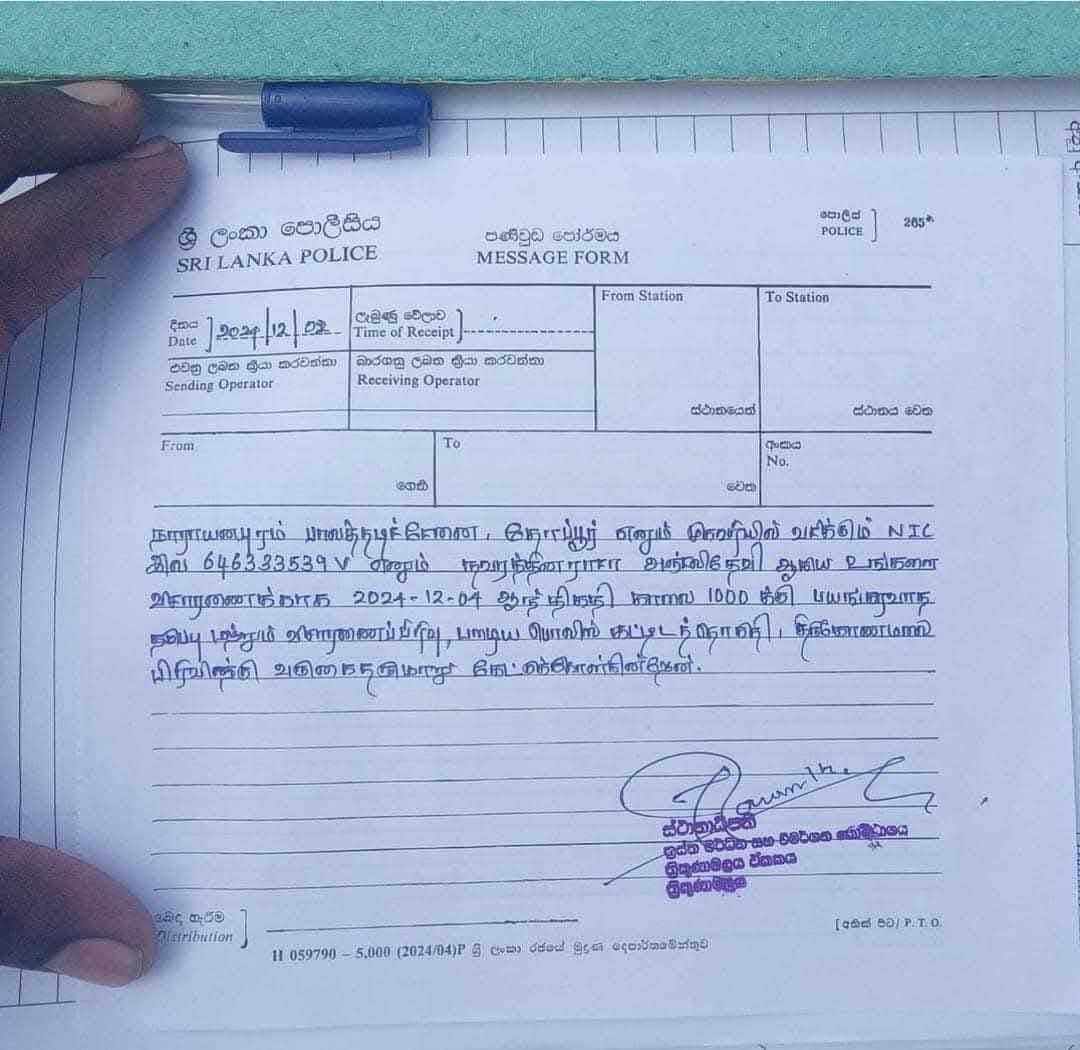 ශ්‍රී ලංකා පොලීසිය
SRI LANKA POLICE
පණිවුඩ පෝර්මය
MESSAGE FORM
පොලිස්
POLICE
265
දිනය
Date
2024/12/02
ලැබුණු වේලාව
Time of Receipt
From Station
To Station
එවනු ලබන ක්‍රියා කරවන්නා
Sending Operator
බාරගනු ලබන ක්‍රියා කරවන්නා
Receiving Operator
ස්ථානයෙන්
ස්ථානය වෙත
From
To
අංකය
No.
ගෙන්
වෙත
நாராயணபுரம் பாலத்தடிச்சேனை, தோப்பூர் எனும் முகவரியில் வசிக்கும் NIC
இல 646333539V எனும் நவரத்தினராசா அஞ்சலிதேவி ஆகிய உங்களை
விசாரணைக்காக 2024-12-04 ஆந் திகதி காலை 1000 க்கு பயங்கரவாத
தடுப்பு மற்றும் விசாரணைப்பிரிவு, பழைய பொலிஸ் கட்டிடத்தொகுதி, திருகோணமலை
பிரிவிற்கு வருகைதருமாறு கேட்டுக்கொள்கின்றேன்.
ස්ථානාධිපති
ත්‍රස්ත මර්ධන සහ විමර්ශන කොට්ඨාශය
ත්‍රිකුණාමලය ඒකකය
ත්‍රිකුණාමලය
බෙදා හැරීම
Distribution
[අනිස් පිට/ P. T. O.
H 059790 – 5,000 (2024/04)P ශ්‍රී ලංකා රජයේ මුද්‍රණ දෙපාර්තමේන්තුව